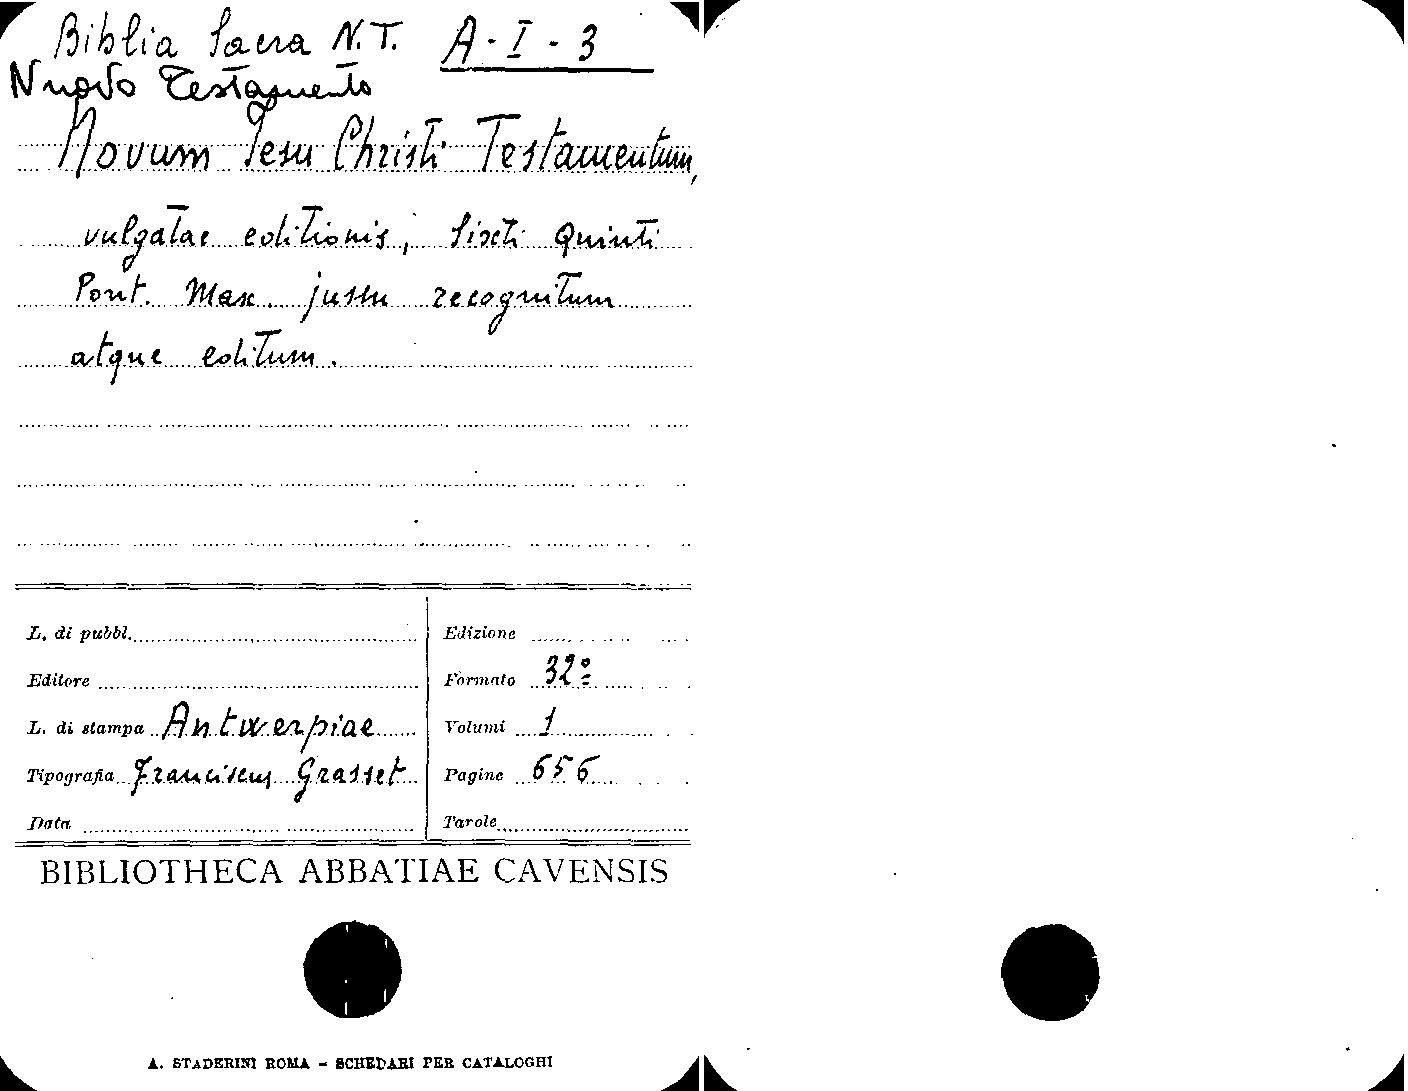 Biblia Sacra N.T. A-I-3
Nuovo Testamento
Novum Jesu Christi Testamentum,
vulgatae editionis, Sixti Quinti
Pont. Max. jussu recognitum
atque editum.
L. di pubbl.
Edizione
Editore
Formato 32º
L. di stampa Antwerpiae
Volumi 1
Tipografia Franciscus Grasset
Pagine 656
Data
Tavole
BIBLIOTHECA ABBATIAE CAVENSIS
A. STADERINI ROMA - SCHEDARI PER CATALOGHI